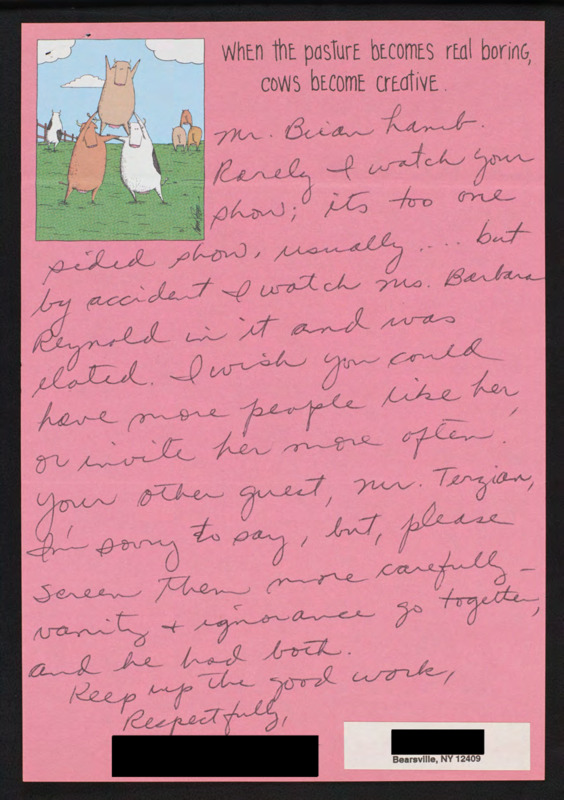 WHEN THE PASTURE BECOMES REAL BORING,
COWS BECOME CREATIVE.
Mr. Brian Lamb.
Rarely I watch your
show; its too one
sided show, usually.... but
by accident I watch Ms. Barbara
Reynold in it and was
elated. I wish you could
have more people like her,
or invite her more often.
Your other guest, Mr. Terzian,
I'm sorry to say, but, please
screen them more carefully –
vanity + ignorance go together,
and he had both.
Keep up the good work,
Respectfully,
Bearsville, NY 12409